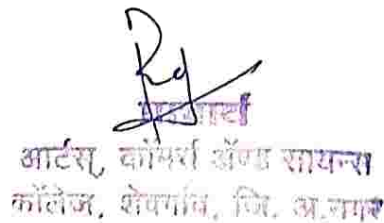 प्राचार्य
आर्टस्, कॉमर्स अॅण्ड सायन्स
कॉलेज, शेवगाव, जि. अ.नगर